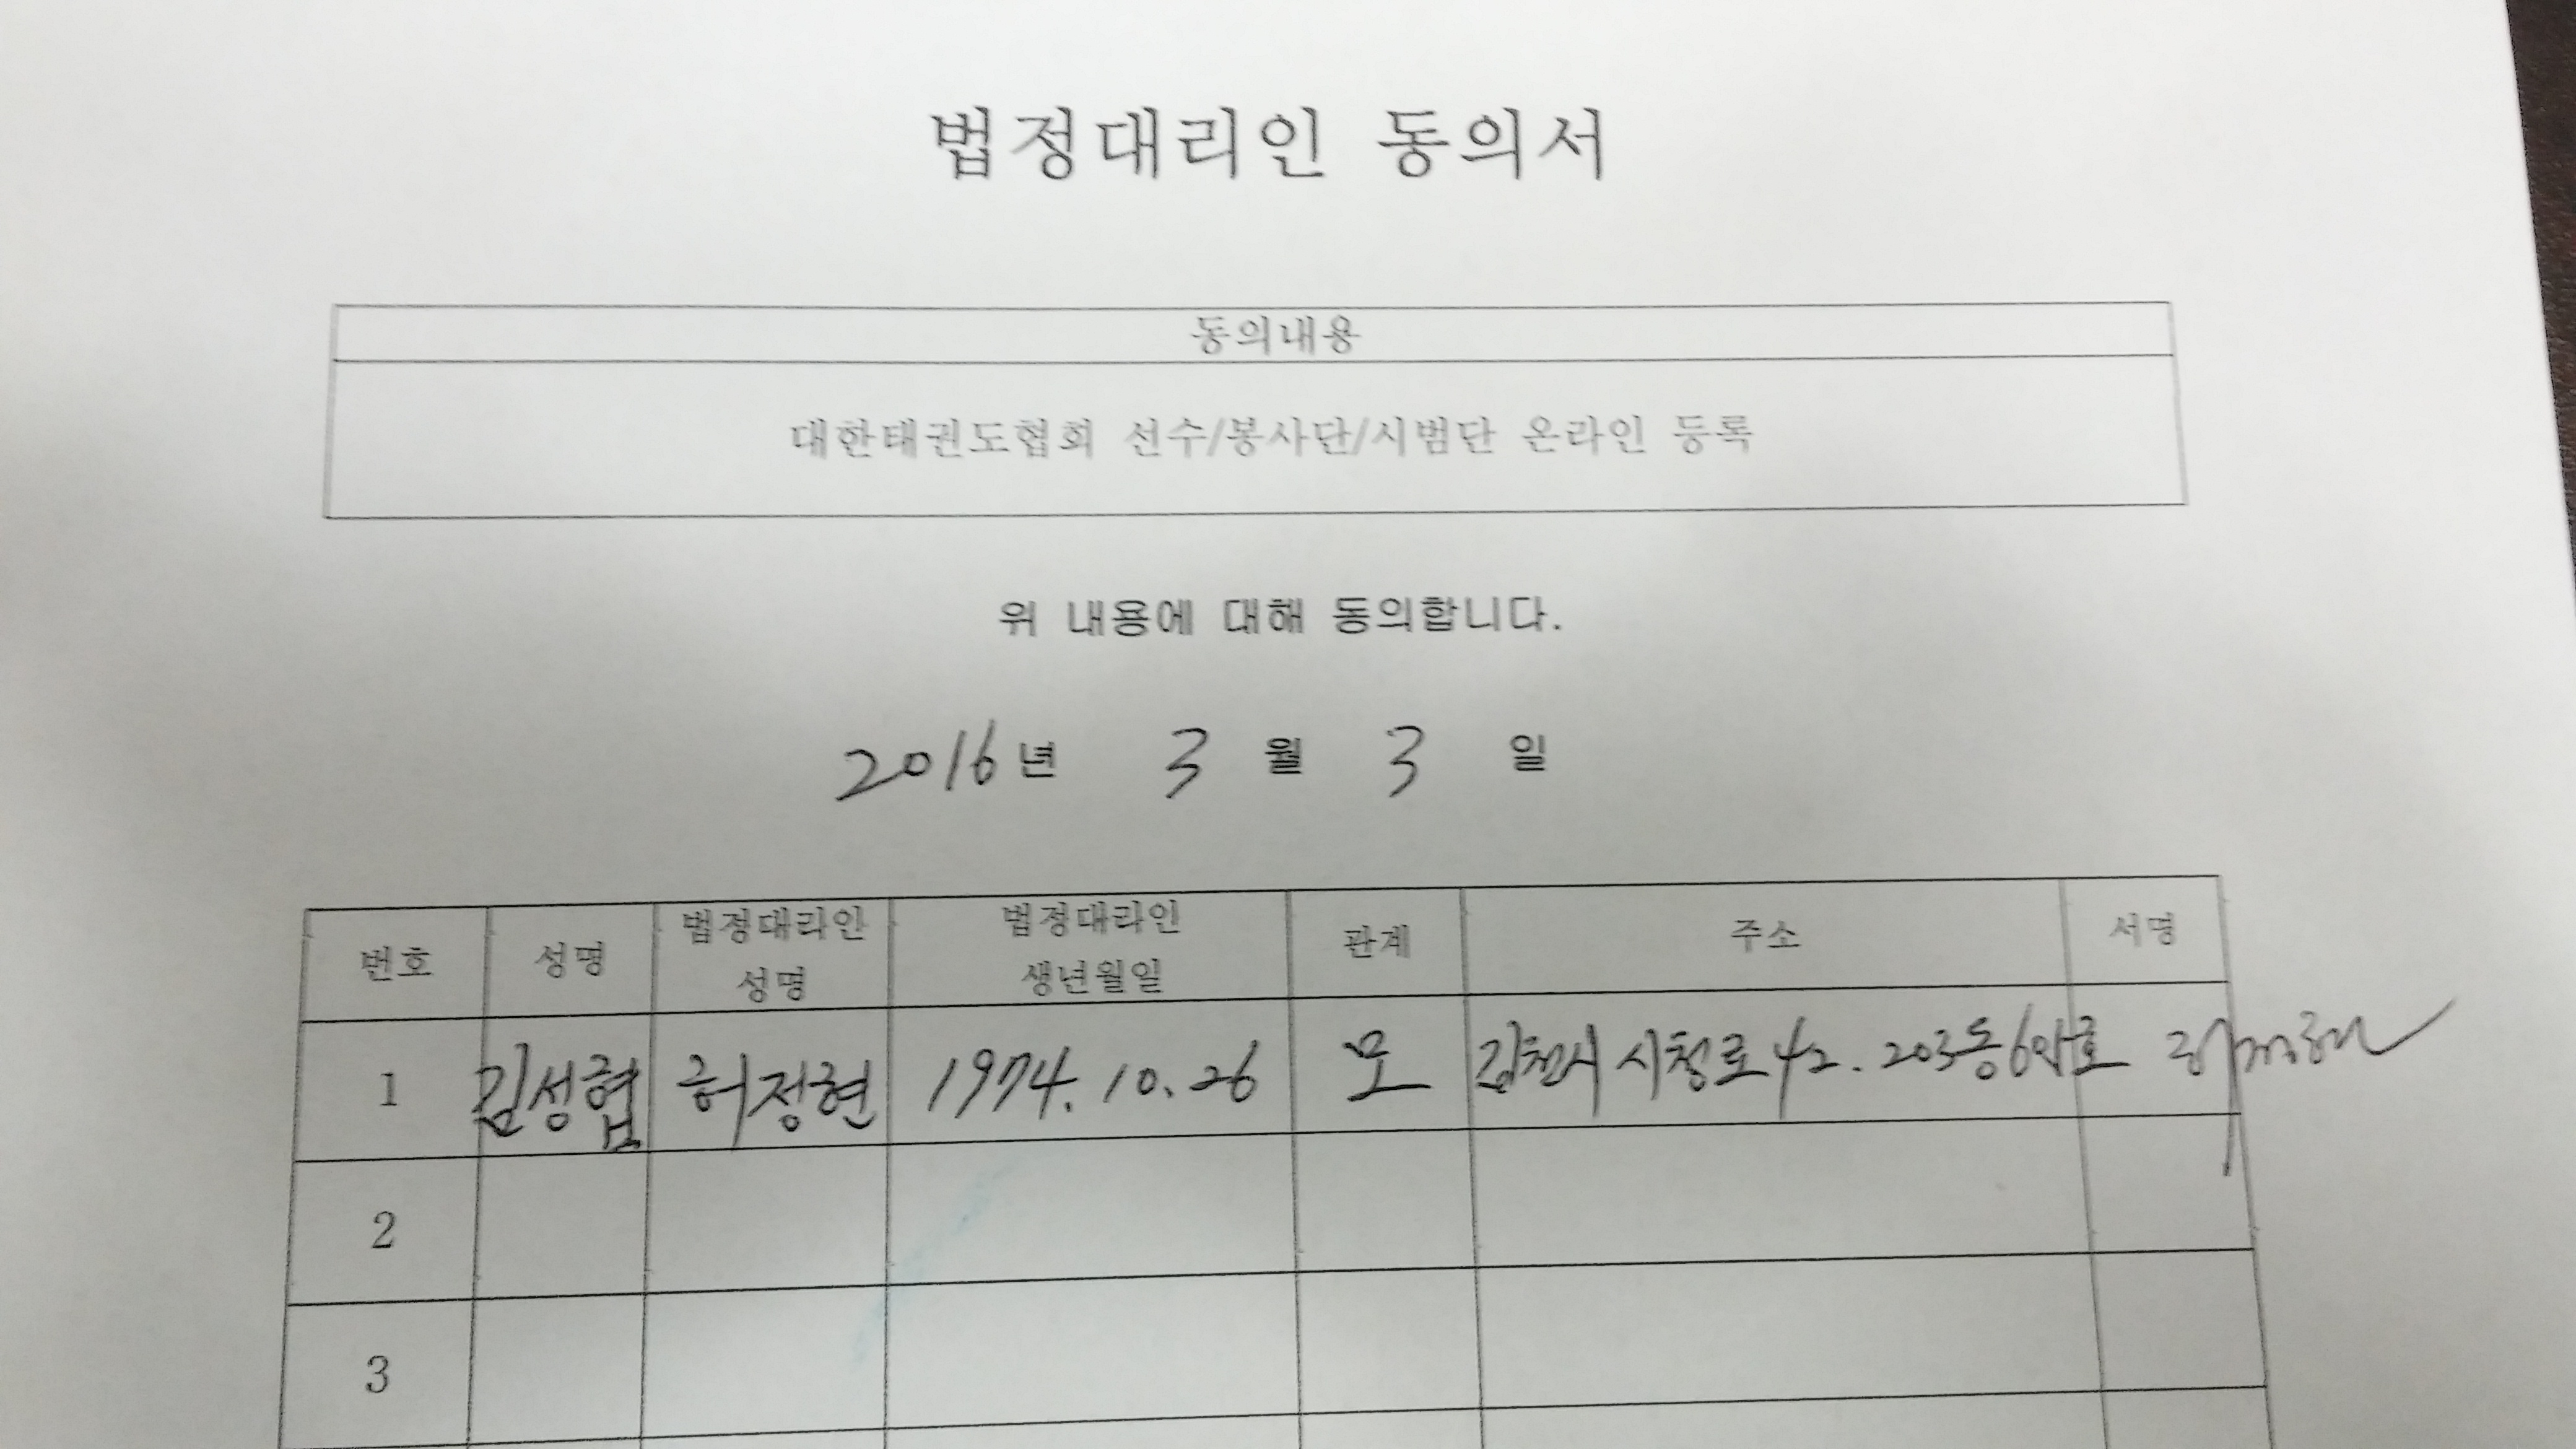 법정대리인 동의서
동의내용
대한태권도협회 선수/봉사단/시범단 온라인 등록
위 내용에 대해 동의합니다.
2016년 3 월 3 일
번호 성명 법정대리인 성명 법정대리인 생년월일 관계 주소 서명
1 김성협 허정현 1974. 10. 26 모 김천시 시청로 42. 203동
2
3